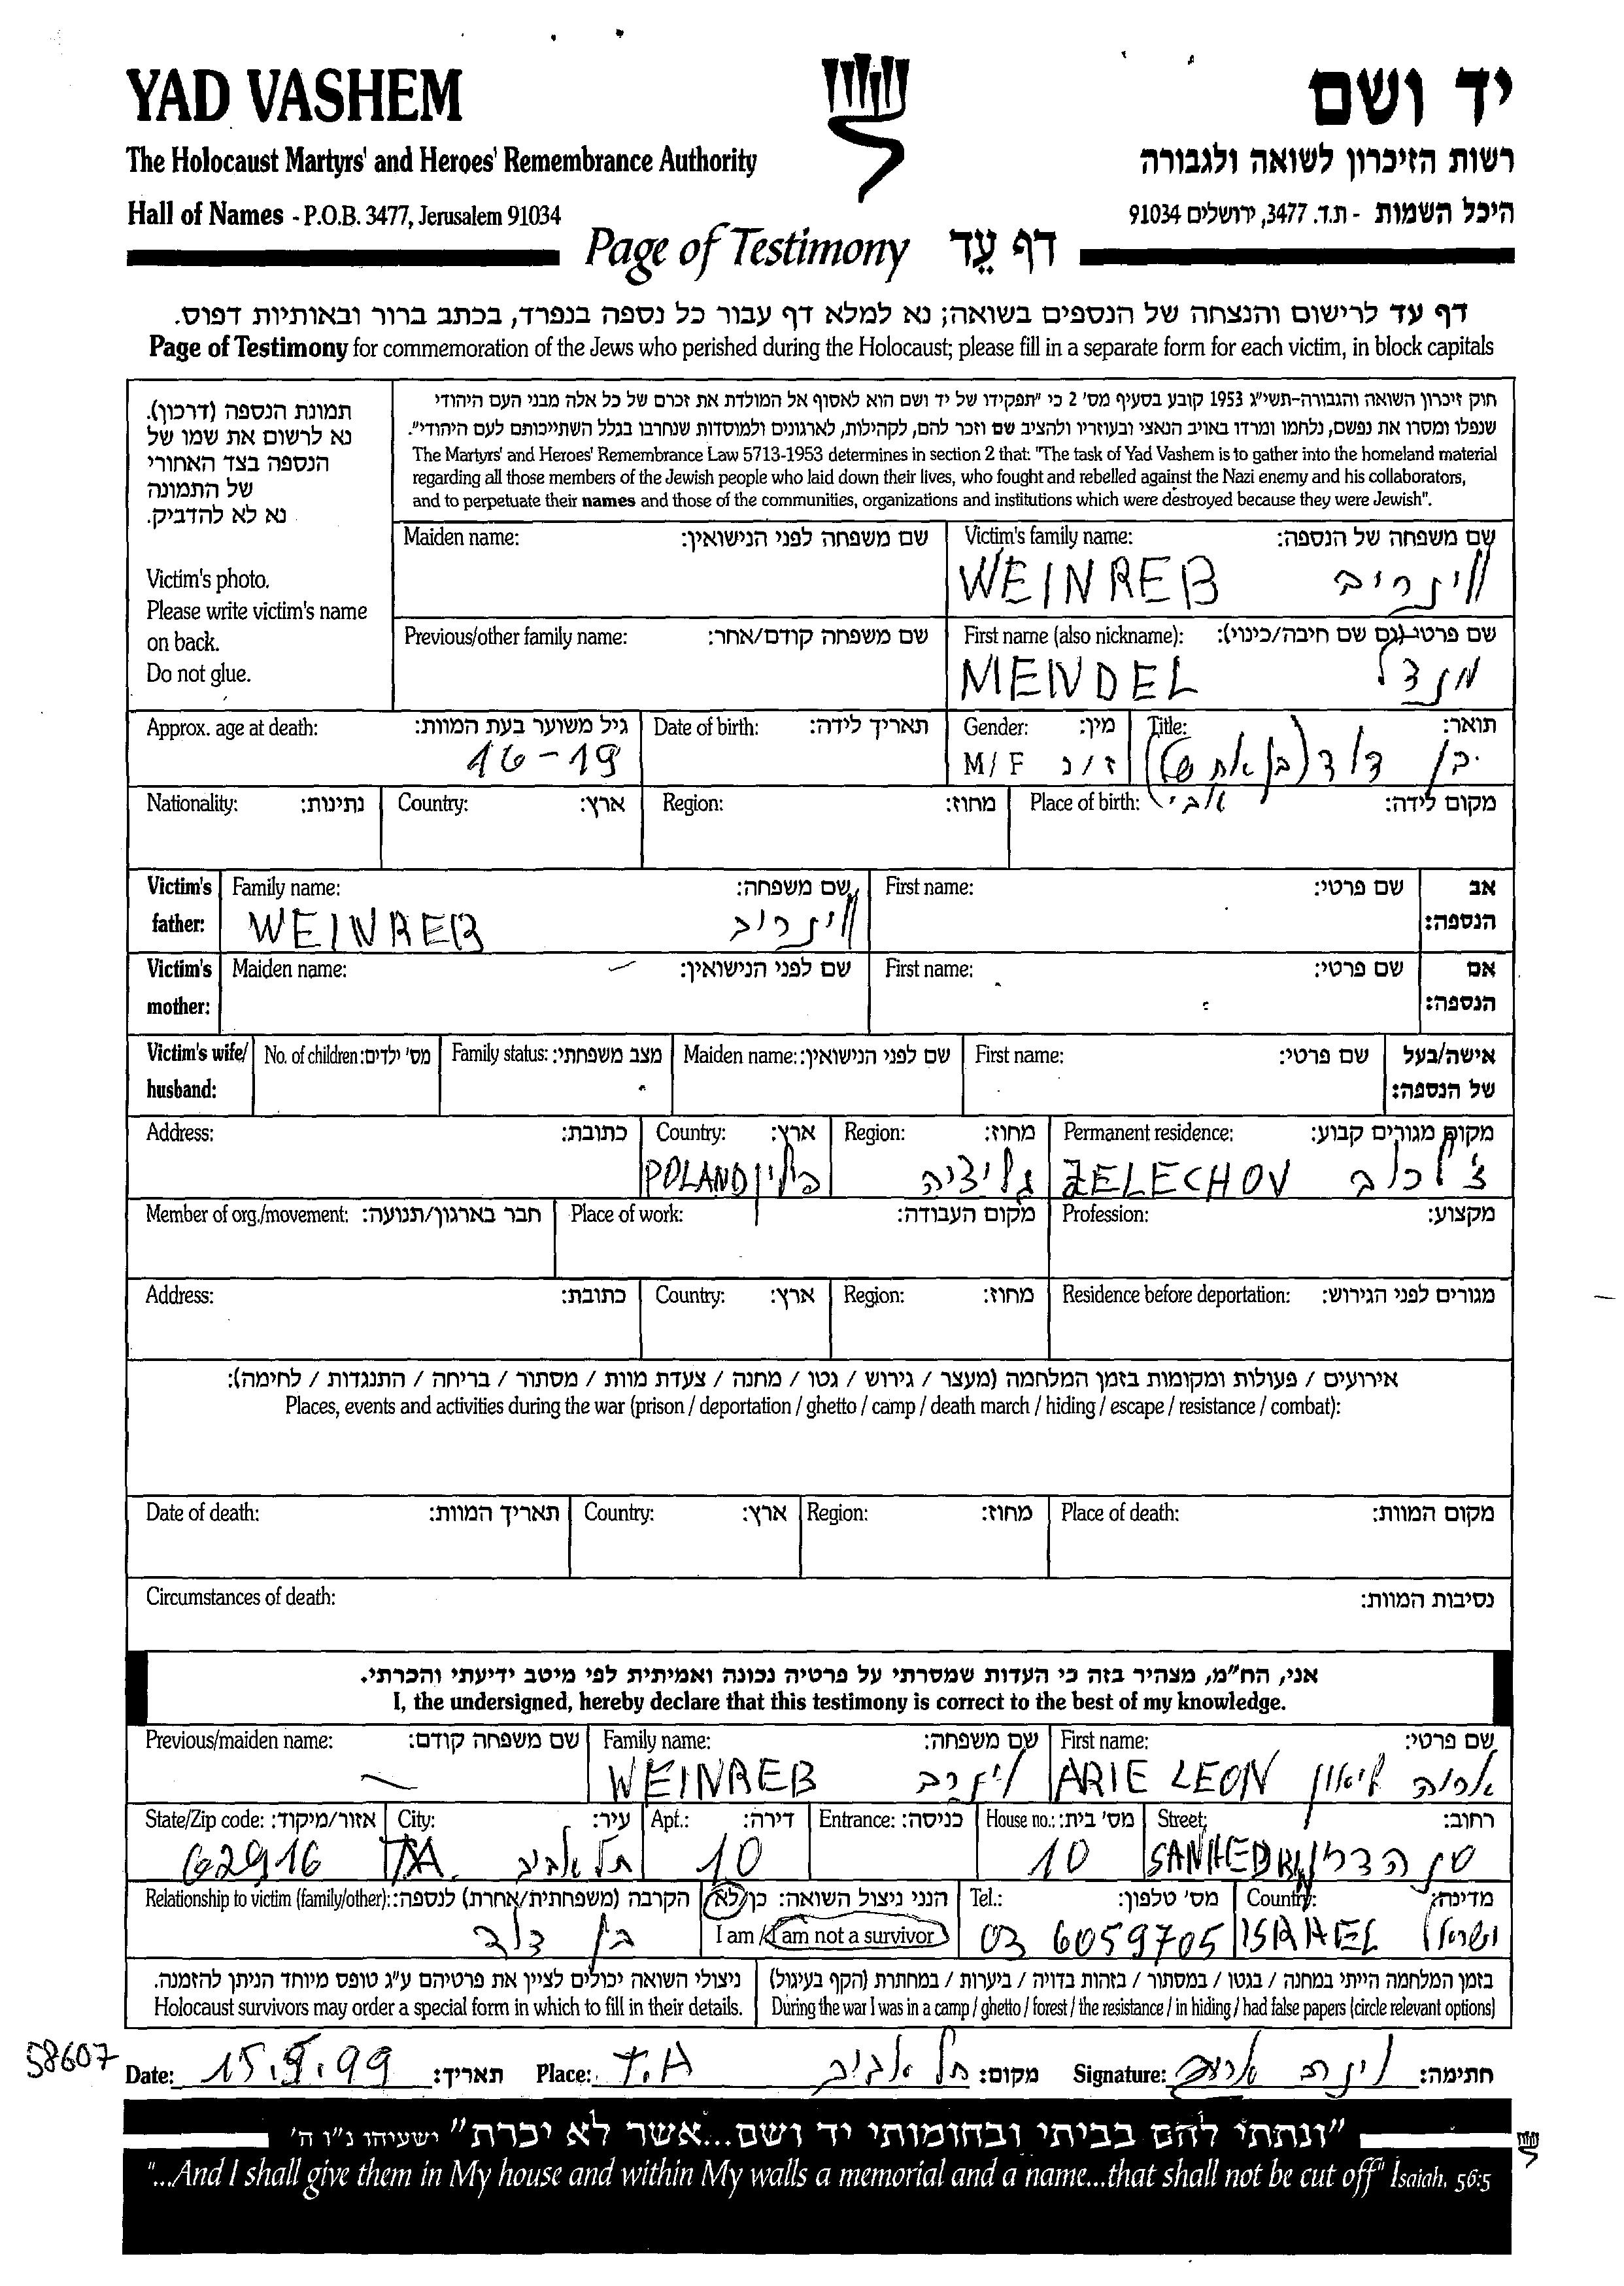 YAD VASHEM
יד ושם
The Holocaust Martyrs' and Heroes' Remembrance Authority
רשות הזיכרון לשואה ולגבורה
Hall of Names - P.O.B. 3477, Jerusalem 91034
היכל השמות - ת.ד. 3477, ירושלים 91034
Page of Testimony דף עֵד
דף עד לרישום והנצחה של הנספים בשואה; נא למלא דף עבור כל נספה בנפרד, בכתב ברור ובאותיות דפוס.
Page of Testimony for commemoration of the Jews who perished during the Holocaust; please fill in a separate form for each victim, in block capitals
תמונת הנספה (דרכון).
נא לרשום את שמו של
הנספה בצד האחורי
של התמונה
נא לא להדביק.
Victim's photo.
Please write victim's name
on back.
Do not glue.
חוק זיכרון השואה והגבורה-תשי"ג 1953 קובע בסעיף מס' 2 כי "תפקידו של יד ושם הוא לאסוף אל המולדת את זכרם של כל אלה מבני העם היהודי
שנפלו ומסרו את נפשם, נלחמו ומרדו באויב הנאצי ובעוזריו ולהציב שם וזכר להם, לקהילות, לארגונים ולמוסדות שנחרבו בגלל השתייכותם לעם היהודי".
The Martyrs' and Heroes' Remembrance Law 5713-1953 determines in section 2 that: "The task of Yad Vashem is to gather into the homeland material
regarding all those members of the Jewish people who laid down their lives, who fought and rebelled against the Nazi enemy and his collaborators,
and to perpetuate their names and those of the communities, organizations and institutions which were destroyed because they were Jewish".
Maiden name: שם משפחה לפני הנישואין:
Victim's family name: שם משפחה של הנספה:
WEINREB ויינריב
Previous/other family name: שם משפחה קודם/אחר:
First name (also nickname): שם פרטי (גם שם חיבה/כינוי):
MENDEL מנדל
Approx. age at death: גיל משוער בעת המוות:
16-19
Date of birth: תאריך לידה:
Gender: מין:
M/F ז/נ
Title: תואר:
בן דוד (בן אח של
אבי)
Nationality: נתינות:
Country: ארץ:
Region: מחוז:
Place of birth: מקום לידה:
Victim's father: Family name: שם משפחה:
WEINREB ויינריב
First name: שם פרטי:
אב הנספה:
Victim's mother: Maiden name: שם לפני הנישואין:
First name: שם פרטי:
אם הנספה:
Victim's wife/ husband: No. of children: מס' ילדים: Family status: מצב משפחתי: Maiden name: שם לפני הנישואין: First name: שם פרטי: אישה/בעל של הנספה:
Address: כתובת: Country: ארץ: Region: מחוז: Permanent residence: מקום מגורים קבוע:
POLAND פולין גליציה ZELECHOV צ'לכוב
Member of org./movement: חבר בארגון/תנועה: Place of work: מקום העבודה: Profession: מקצוע:
Address: כתובת: Country: ארץ: Region: מחוז: Residence before deportation: מגורים לפני הגירוש:
אירועים / פעולות ומקומות בזמן המלחמה (מעצר / גירוש / גטו / מחנה / צעדת מוות / מסתור / בריחה / התנגדות / לחימה):
Places, events and activities during the war (prison / deportation / ghetto / camp / death march / hiding / escape / resistance / combat):
Date of death: תאריך המוות: Country: ארץ: Region: מחוז: Place of death: מקום המוות:
Circumstances of death: נסיבות המוות:
אני, הח"מ, מצהיר בזה כי העדות שמסרתי על פרטיה נכונה ואמיתית לפי מיטב ידיעתי והכרתי.
I, the undersigned, hereby declare that this testimony is correct to the best of my knowledge.
Previous/maiden name: שם משפחה קודם: Family name: שם משפחה: First name: שם פרטי:
WEINREB וינרב ARIE LEON אריה ליאון
State/Zip code: אזור/מיקוד: City: עיר: Apt.: דירה: Entrance: כניסה: House no.: מס' בית: Street: רחוב:
62916 T.A. תל אביב 10 10 SANHEDRIN סנהדרין
Relationship to victim (family/other): הקרבה (משפחתית/אחרת) לנספה: הנני ניצול השואה: כן/לא Tel.: מס' טלפון: Country: מדינה:
בן דוד I am / I am not a survivor 03 6059705 ISRAEL ישראל
ניצולי השואה יכולים לציין את פרטיהם ע"ג טופס מיוחד הניתן להזמנה.
Holocaust survivors may order a special form in which to fill in their details.
בזמן המלחמה הייתי במחנה / בגטו / במסתור / בזהות בדויה / ביערות / במחתרת (הקף בעיגול)
During the war I was in a camp / ghetto / forest / the resistance / in hiding / had false papers (circle relevant options)
58607
Date: 15.9.99 תאריך: Place: T.A תל אביב מקום: Signature: וינרב אריה חתימה:
"ונתתי להם בביתי ובחומותי יד ושם...אשר לא יכרת" ישעיהו נ"ו ה'
"...And I shall give them in My house and within My walls a memorial and a name...that shall not be cut off" Isaiah, 56:5